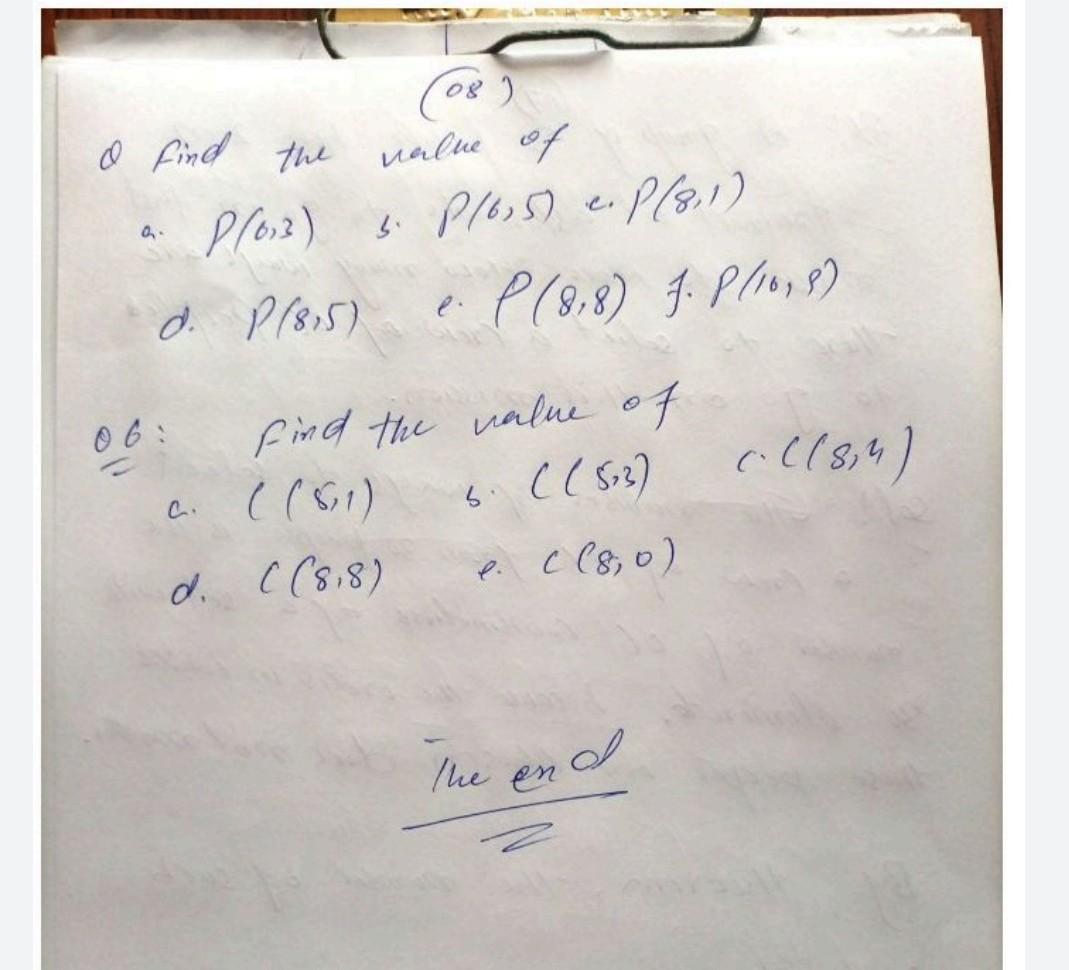 (08)
Q find the value of
a. P(6,3) b. P(6,5) c. P(8,1)
d. P(8,5) e. P(8,8) f. P(10,9)
Q6: find the value of
a. C(5,1) b. C(5,3) c. C(8,4)
d. C(8,8) e. C(8,0)
The end